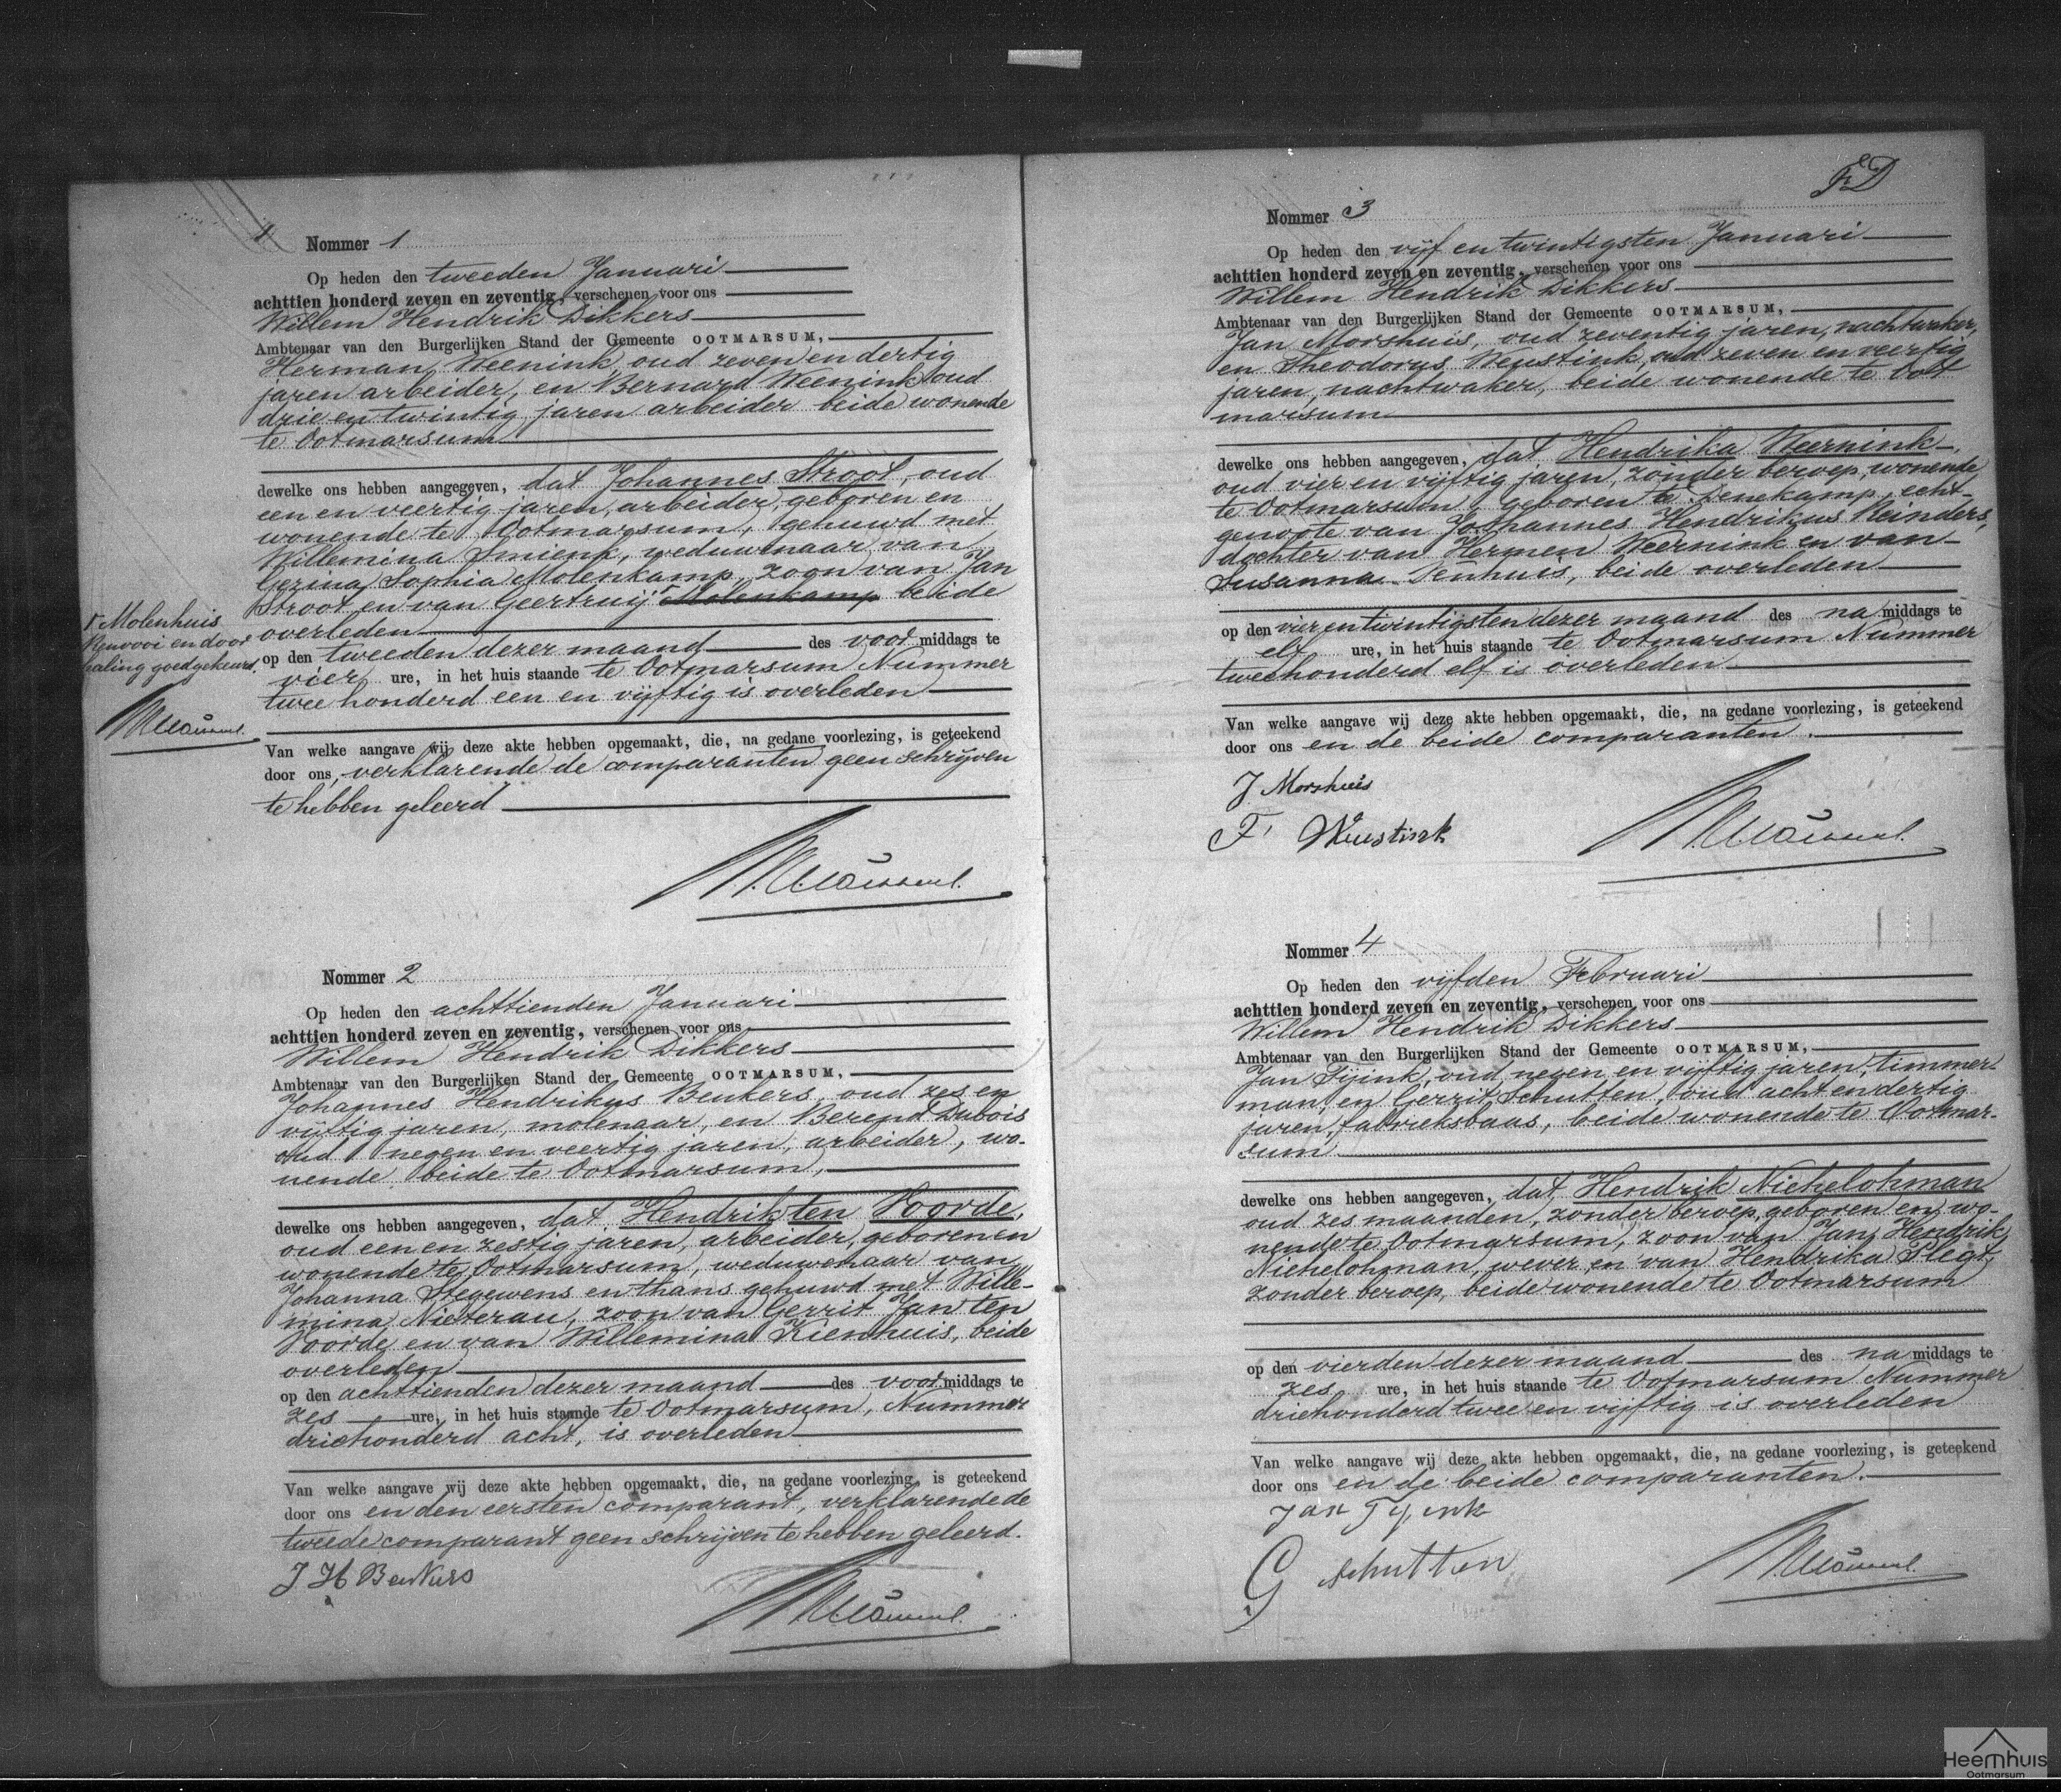 1 Nommer 1
Op heden den tweeden Januari
achttien honderd zeven en zeventig, verschenen voor ons
Willem Hendrik Dikkers
Ambtenaar van den Burgerlijken Stand der Gemeente OOTMARSUM,
Herman Weenink, oud zeven en dertig
jaren arbeider, en Bernard Weenink oud
drie en twintig jaren arbeider beide wonende
te Ootmarsum
dewelke ons hebben aangegeven, dat Johannes Stroot, oud
een en veertig jaren, arbeider, geboren en
wonende te Ootmarsum, gehuwd met
Willemina Smienk, weduwenaar van
Gezina Sophia Molenkamp, zoon van Jan
Stroot en van Geertruij Molenkamp beide
overleden
Molenhuis
Renvooi en door
haling goedgekeurd.
op den tweeden dezer maand des voormiddags te
vier ure, in het huis staande te Ootmarsum Nummer
twee honderd een en vijftig is overleden
Van welke aangave wij deze akte hebben opgemaakt, die, na gedane voorlezing, is geteekend
door ons, verklarende de comparanten geen schrijven
te hebben geleerd
Nommer 2
Op heden den achttienden Januari
achttien honderd zeven en zeventig, verschenen voor ons
Willem Hendrik Dikkers
Ambtenaar van den Burgerlijken Stand der Gemeente OOTMARSUM,
Johannes Hendrikus Beukers, oud zes en
vijftig jaren, molenaar, en Berend Dubois
oud negen en veertig jaren, arbeider, wo-
nende beide te Ootmarsum,
dewelke ons hebben aangegeven, dat Hendrik ten Voorde,
oud een en zestig jaren, arbeider, geboren en
wonende te Ootmarsum, weduwenaar van
Johanna Stegewens en thans gehuwd met Wille-
mina Nieterau, zoon van Gerrit Jan ten
Voorde en van Willemina Kienhuis, beide
overleden
op den achttienden dezer maand des voormiddags te
zes ure, in het huis staande te Ootmarsum, Nummer
driehonderd acht, is overleden
Van welke aangave wij deze akte hebben opgemaakt, die, na gedane voorlezing, is geteekend
door ons en den eersten comparant, verklarende de
tweede comparant geen schrijven te hebben geleerd.
J H Beukers
Nommer 3
Op heden den vijf en twintigsten Januari
achttien honderd zeven en zeventig, verschenen voor ons
Willem Hendrik Dikkers
Ambtenaar van den Burgerlijken Stand der Gemeente OOTMARSUM,
Jan Morshuis, oud zeventig jaren, nachtwaker,
en Theodorus Weustink, oud zeven en veertig
jaren, nachtwaker, beide wonende te Oot
marsum
dewelke ons hebben aangegeven, dat Hendrika Weernink,
oud vier en vijftig jaren, zonder beroep, wonende
te Ootmarsum, geboren te Denekamp, echt-
genoote van Johannes Hendrikus Reinders,
dochter van Hermen Weernink en van
Susanna Venhuis, beide overleden
op den vier en twintigsten dezer maand des namiddags te
elf ure, in het huis staande te Ootmarsum Nummer
tweehonderd elf is overleden
Van welke aangave wij deze akte hebben opgemaakt, die, na gedane voorlezing, is geteekend
door ons en de beide comparanten.
J Morshuis
F. Weustink
Nommer 4
Op heden den vijfden Februari
achttien honderd zeven en zeventig, verschenen voor ons
Willem Hendrik Dikkers
Ambtenaar van den Burgerlijken Stand der Gemeente OOTMARSUM,
Jan Tijink, oud negen en vijftig jaren, timmer-
man, en Gerrit Schutten, oud acht en dertig
jaren, fabrieksbaas, beide wonende te Ootmar-
sum
dewelke ons hebben aangegeven, dat Hendrik Niehelohman
oud zes maanden, zonder beroep, geboren en wo-
nende te Ootmarsum, zoon van Jan Hendrik
Niehelohman, wever en van Hendrika Plegt,
zonder beroep, beide wonende te Ootmarsum
op den vierden dezer maand des namiddags te
zes ure, in het huis staande te Ootmarsum Nummer
driehonderd twee en vijftig is overleden
Van welke aangave wij deze akte hebben opgemaakt, die, na gedane voorlezing, is geteekend
door ons en de beide comparanten.
Jan Tijink
G Schutten
Heemhuis
Ootmarsum